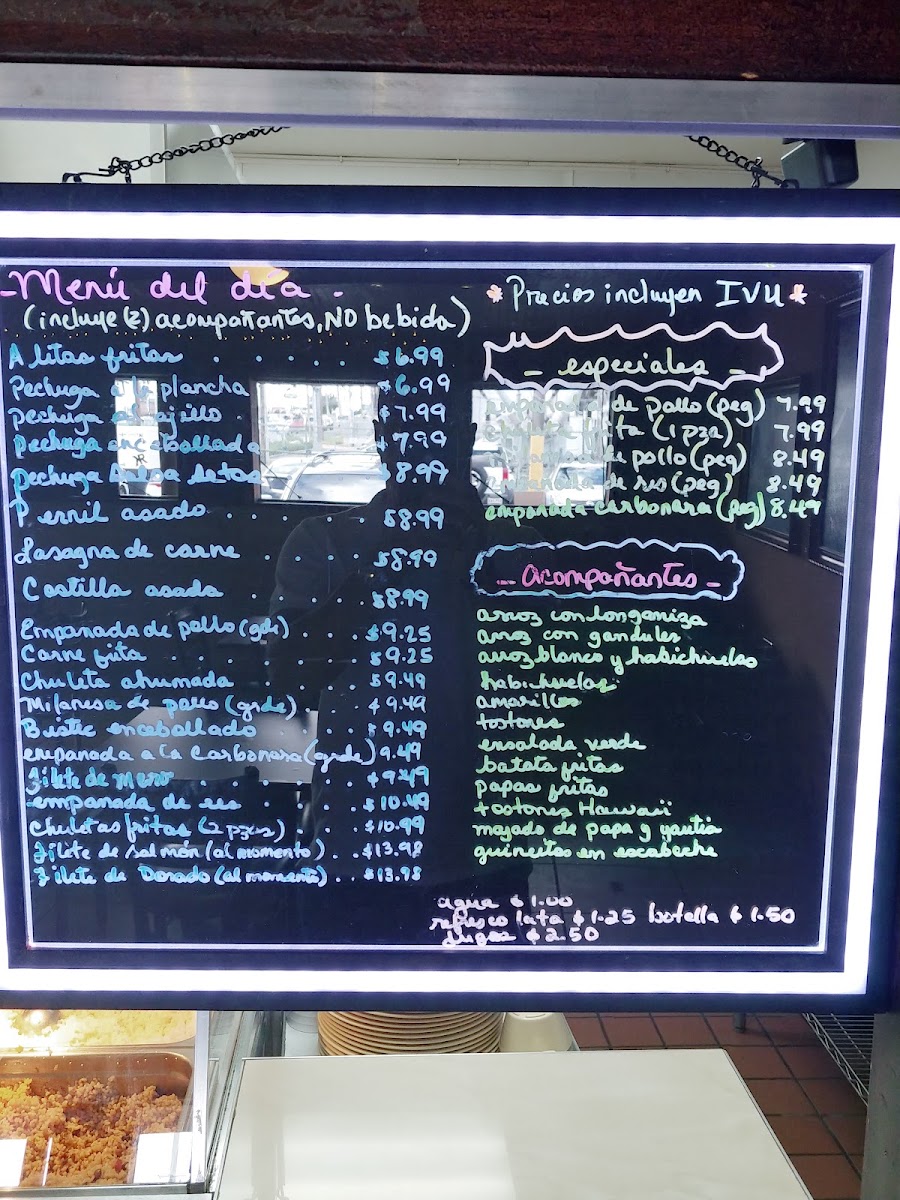 -Menú del día-
(incluye (2) acompañantes, NO bebida)
Alitas fritas . . . . . $6.99
Pechuga a la plancha $6.99
pechuga al ajillo . $7.99
Pechuga encebollada $7.99
pechuga $8.99
Pernil asado . . . . . $8.99
Lasagna de carne . . . . $8.99
Costilla asada . . . . $8.99
Empanada de pollo (gde) . . . $9.25
Carne frita . . . . . $9.25
Chuleta ahumada . . . . $9.49
Milanesa de pollo (grde) . . . $9.49
Bistec encebollado . . . . $9.49
empanada a la Carbonara (grde) 9.49
filete de Mero . . . . . $9.49
empanada de res . . . . $10.49
chuletas fritas (2 pzas) . . . $10.99
filete de salmón (al momento) . . $13.98
filete de Dorado (al momento) . . $13.98
* Precios incluyen IVU *
- especiales -
de pollo (peq) 7.99
(1 pza) 7.99
de pollo (peq) 8.49
de res (peq) 8.49
empanada carbonara (peq) 8.49
- Acompañantes -
arroz con longaniza
arroz con gandules
arroz blanco y habichuelas
habichuelas
amarillos
tostones
ensalada verde
batata fritas
papas fritas
tostones Hawaii
majado de papa y yautia
guineitos en escabeche
agua $1.00
refresco lata $1.25 botella $1.50
Jugos $2.50